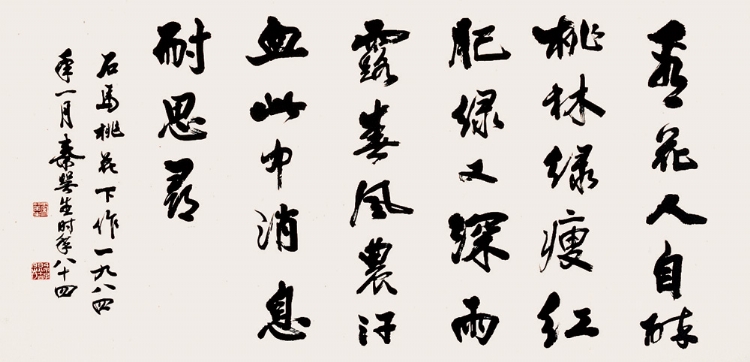 看花人自醉
桃林绿瘦红
肥绿又深雨
露春風農汗
血此中消息
耐思尋
石馬桃花下作一九八四
年一月秦咢生时年八十四